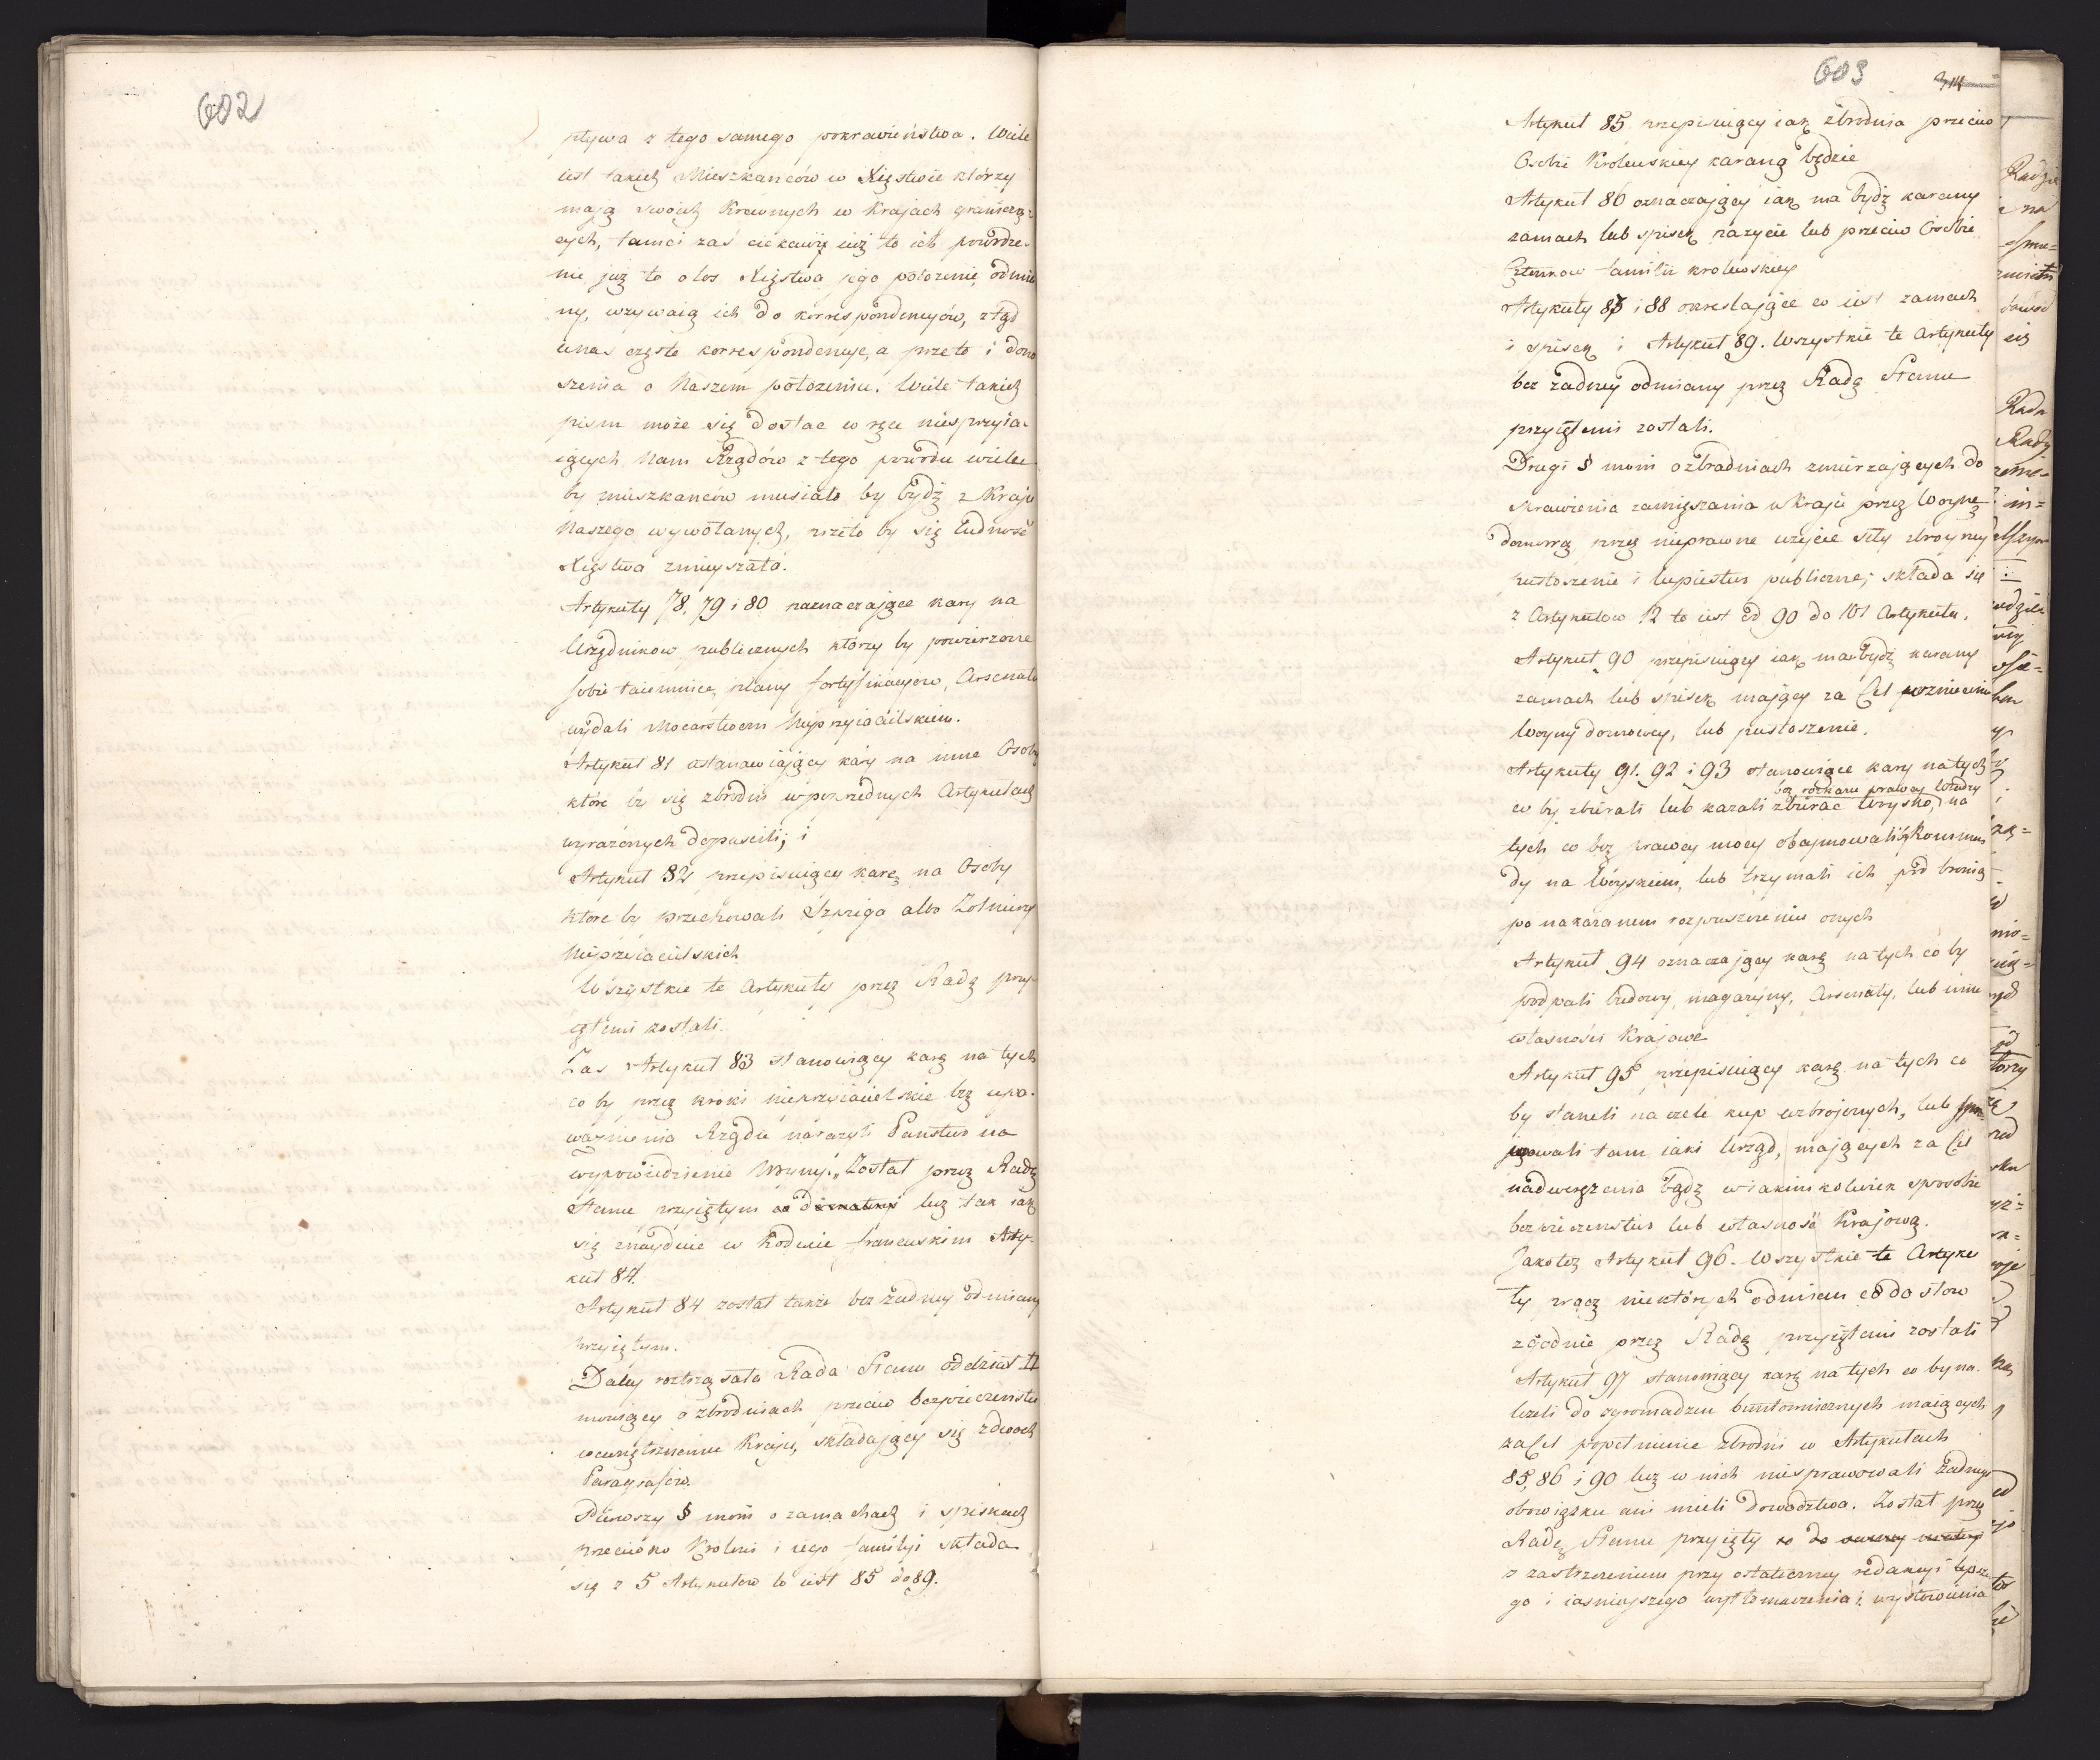 602
pływa z tego samego pokrawieństwa. Wiele
iest takich Mieszkańców w Xięstwie którzy
mają swoich Krewnych w Krajach graniczą=
cych, tamci zaś ciekawi iuż to ich powodze-
nie już to o los Xięstwa jego położenie, odmia
ny, wzywaią ich do korrespondencyów, ztąd
unas częste korrespondencye, a przeto i dono
szenia o Naszem położeniu. Wiele takich
pism może się dostać w ręce niesprzyia-
iących Nam Rządów z tego powodu wiele
by mieszkańców musiało by bydź z Kraju
Naszego wywołanych, przeto by się ludność
Xięstwa zmieyszała.
Artykuły 78, 79 i 80 naznaczające kary na
Urzędnikow publicznych którzy by powierzone
sobie taiemnice, plany fortyfikacyow, Arsenału
wydali Mocarstwom Nieprzyiacielskim.
Artykuł 81 ustanawiający kary na inne Osoby
które by się zbrodni w poprzednych Artykułach
wyrażonych dopuscili; i
Artykuł 82 przepisuiący karę na Osoby
które by przechowali Szpiega albo Zołnierzy
Nieprzyiacielskich
Wszystkie te Artykuły przez Radę przy-
iętemi zostali.
Zas Artykuł 83 stanowiący karę na tych
co by przez kroki nieprzyiacielskie bez upo-
ważnienia Rządu narazyli Państwo na
wypowiedzenie Woyny. Został przez Radę
Stanu przyiętym lecz tak iak
się znayduie w Kodexie francuskim Arty-
kuł 84.
Artykuł 84 został także bez żadney odmiany
przyiętym.
Daley roztrząsała Rada Stanu oddział II
mowiący o zbrodniach przeciw bezpieczeństwu
wewnętrznemu Kraju, składający się z dwoch
Paragrafów.
Pierwszy § mowi o zamachach i spiskach
przeciwko Krolowi i iego familyi składa
się z 5 Artykułow to iest 85 do 89.
603
314
Artykuł 85 przepisuiący iak zbrodnia przeciw
Osobie Krolewskiey karaną będzie
Artykuł 86 oznaczający iak ma bydź karany
zamach lub spisek na zycie lub przeciw Osobie
Członkow familii krolewskiey
Artykuły 87 i 88 określające co iest zamach
i spisek i Artykuł 89. Wszystkie te Artykuły
bez żadney odmiany przez Radę Stanu
przyiętemi zostali.
Drugi § mowi o zbrodniach zmierzających do
sprawienia zamięszania w kraju przez Woynę
domową przez nieprawne użycie siły zbroyney
pustoszenie i łupiestwo publiczne; składa się
z Artykułow 12 to iest od 90 do 101 Artykułu.
Artykuł 90 przepisuiący iak ma bydź karany
zamach lub spisek mający za Cel wzniecenie
Woyny domowey, lub pustoszenie.
Artykuły 91. 92 i 93 stanowiące kary na tych
bez rozkazu prawey Władzy
co by zbierali lub kazali zbierać Woysko, na
tych co bez prawey mocy obaymowali by Kommen
dy na Woyskiem, lub trzymali ich pod bronią
po nakazanem rozpuszczeniu onych
Artykuł 94 oznaczający karę na tych co by
podpali budowy, magazyny, Arsenały, lub inne
własności Krajowe
Artykuł 95 przepisuiący karę na tych co
by staneli na czele kup uzbrojonych, lub
tam iaki Urząd, mających za Cel
nadwerężenia bądź w iakimkolwiek sposobie
bezpieczenstwo lub własność Krajową.
Jakoteż Artykuł 96. Wszystkie te Artyku
ły prócz niektórych odmian co do słow
zgodnie przez Radę przyiętemi zostali
Artykuł 97 stanowiący karę na tych co by na-
leżeli do zgromadzeń buntowniczych maiących
za Cel popełnienie zbrodni w Artykułach
85, 86 i 90 lecz w nich nie sprawowali żadnego
obowiązku ani mieli dowodztwa. Został przez
Radę Stanu przyięty co do
z zastrzeżeniem przy ostateczney redakcyi lepsze
go i iasnieyszego wytłomaczenia i wysłowienia